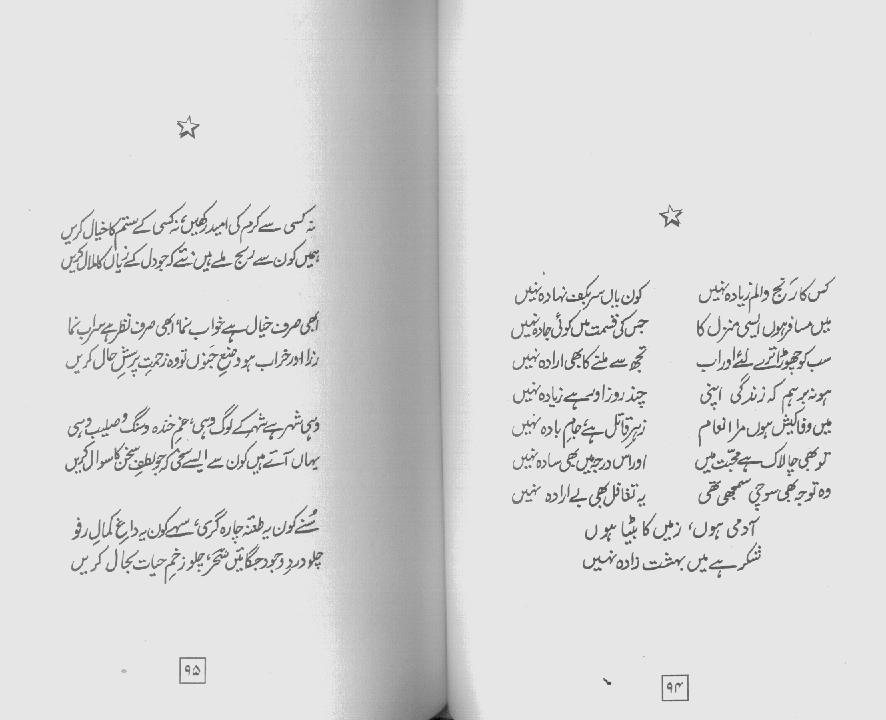 کس کا رنج و الم زیادہ نہیں کون یاں سر بکف نہادہ نہیں
میں مسافر ہوں ایسی منزل کا جس کی قسمت میں کوئی جادہ نہیں
سب کو چھوڑا ترے لئے اور اب تجھ سے ملنے کا بھی ارادہ نہیں
ہو نہ برہم کہ زندگی اپنی چند روز اوس سے زیادہ نہیں
میں وفا کیش ہوں مرا انعام زہرِ قاتل ہے جامِ بادہ نہیں
تو بھی چالاک ہے محبّت میں اور اس درجہ میں بھی سادہ نہیں
وہ توجہ بھی سوچی سمجھی تھی یہ تغافل بھی بے ارادہ نہیں
آدمی ہوں، زمیں کا بیٹا ہوں
شکر ہے میں بہشت زادہ نہیں
۹۴
نہ کسی سے کرم کی امید رکھیں، نہ کسی کے ستم کا خیال کریں
ہمیں کون سے رنج ملے ہیں نئے کہ جو دل کے زیاں کا ملال کریں
ابھی صرف خیال ہے خواب نما، ابھی صرف نظر ہے سراب نما
ذرا اور خراب ہو وضعِ جنوں تو وہ زحمتِ پرسشِ حال کریں
وہی شہر ہے شہر کے لوگ وہی، غمِ خندہ و سنگ و صلیب وہی
یہاں آئے ہیں کون سے ایسے سخی کہ جو لطفِ سخن کا سوال کریں
سُنے کون یہ طعنۂ چارہ گری، سہے کون یہ داغِ کمالِ رفو
چلو دردِ وجود جگائیں سَحَر، چلو زخمِ حیات بحال کریں
۹۵